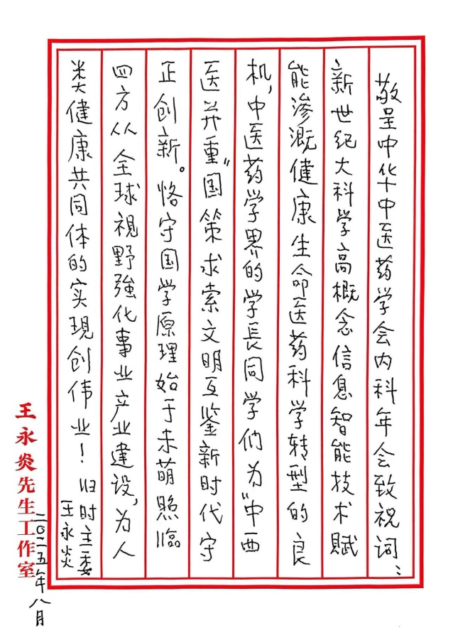 敬呈中华中医药学会内科年会致祝词：
新世纪大科学高概念信息智能技术赋
能渗溉健康生命医药科学转型的良
机，中医药学界的学長同学们为“中西
医并重”国策求索文明互鉴新时代守
正创新。恪守国学原理始于未萌照临
四方从全球視野強化事业产业建设，为人
类健康共同体的实現创伟业！旧时主委
王永炎
二〇二五年八月
王永炎先生工作室